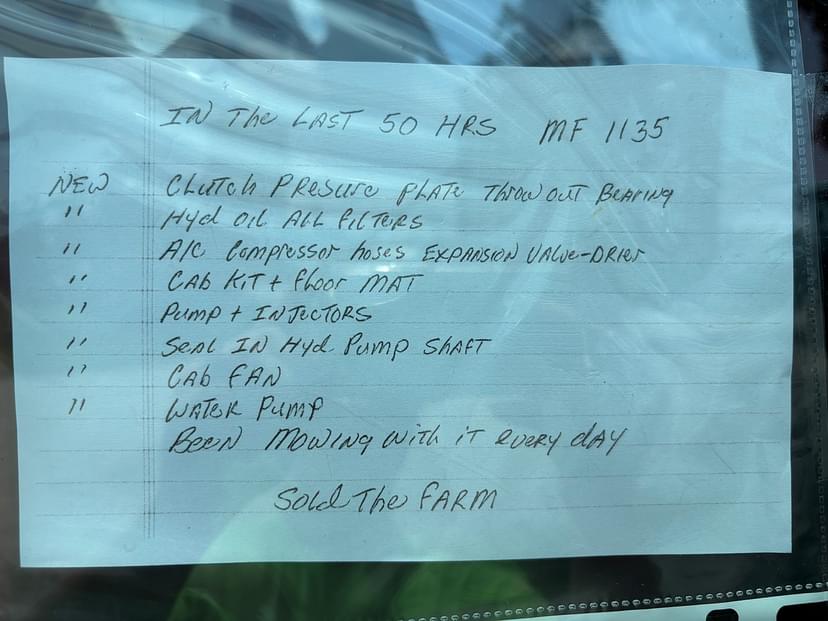 IN The LAST 50 HRS MF 1135
NEW Clutch Presure Plate Throw out Bearing
" Hyd oil All Filters
" A/C Compressor hoses Expansion Valve-Drier
" Cab Kit + floor Mat
" Pump + Injectors
" Seal In Hyd Pump Shaft
" Cab Fan
" Water Pump
Been Mowing with it every day
Sold The Farm